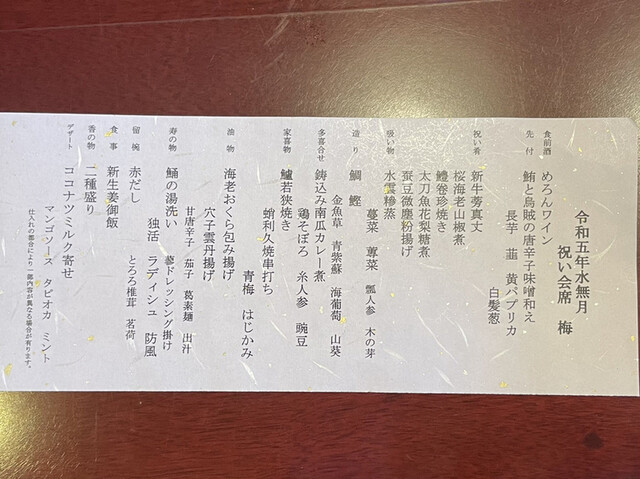 令和五年水無月
祝い会席　梅
食前酒　めろんワイン
先付　鮪と烏賊の唐辛子味噌和え
長芋　韮　黄パプリカ
白髪葱
祝い肴　新牛蒡真丈
桜海老山椒煮
鱧巻珍焼き
太刀魚花梨糖煮
蚕豆微塵粉揚げ
吸い物　水雲糝蒸
蔓菜　蓴菜　瓢人参　木の芽
造り　鯛　鰹
金魚草　青紫蘇　海葡萄　山葵
多喜合せ　鋳込み南瓜カレー煮
鶏そぼろ　糸人参　豌豆
家喜物　鱸若狭焼き
蛸利久焼串打ち
青梅　はじかみ
油物　海老おくら包み揚げ
穴子雲丹揚げ
甘唐辛子　茄子　葛素麺　出汁
寿の物　鯒の湯洗い　蓼ドレッシング掛け
独活　ラディシュ　防風
留椀　赤だし　とろろ椎茸　茗荷
食事　新生姜御飯
香の物　二種盛り
デザート　ココナツミルク寄せ
マンゴソース　タピオカ　ミント
仕入れの都合により一部内容が異なる場合が有ります。